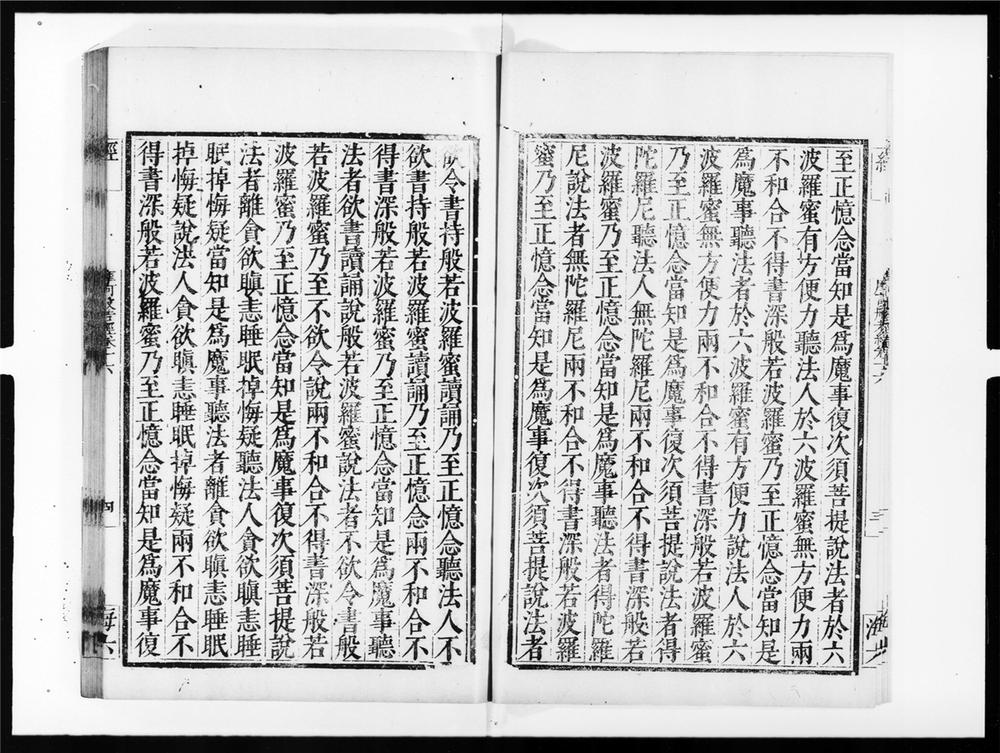 至正憶念當知是爲魔事復次須菩提說法者於六
波羅蜜有方便力聽法人於六波羅蜜無方便力兩
不和合不得書深般若波羅蜜乃至正憶念當知是
爲魔事聽法者於六波羅蜜有方便力說法人於六
波羅蜜無方便力兩不和合不得書深般若波羅蜜
乃至正憶念當知是爲魔事復次須菩提說法者得
陀羅尼聽法人無陀羅尼兩不和合不得書深般若
波羅蜜乃至正憶念當知是爲魔事聽法者得陀羅
尼說法者無陀羅尼兩不和合不得書深般若波羅
蜜乃至正憶念當知是爲魔事復次須菩提說法者
欲令書持般若波羅蜜讀誦乃至正憶念聽法人不
欲書持般若波羅蜜讀誦乃至正憶念兩不和合不
得書深般若波羅蜜乃至正憶念當知是爲魔事聽
法者欲書讀誦說般若波羅蜜說法者不欲令書般
若波羅蜜乃至不欲令說兩不和合不得書深般若
波羅蜜乃至正憶念當知是爲魔事復次須菩提說
法者離貪欲瞋恚睡眠掉悔疑聽法人貪欲瞋恚睡
眠掉悔疑當知是爲魔事聽法者離貪欲瞋恚睡眠
掉悔疑說法人貪欲瞋恚睡眠掉悔疑兩不和合不
得書深般若波羅蜜乃至正憶念當知是爲魔事復
經
四
海六